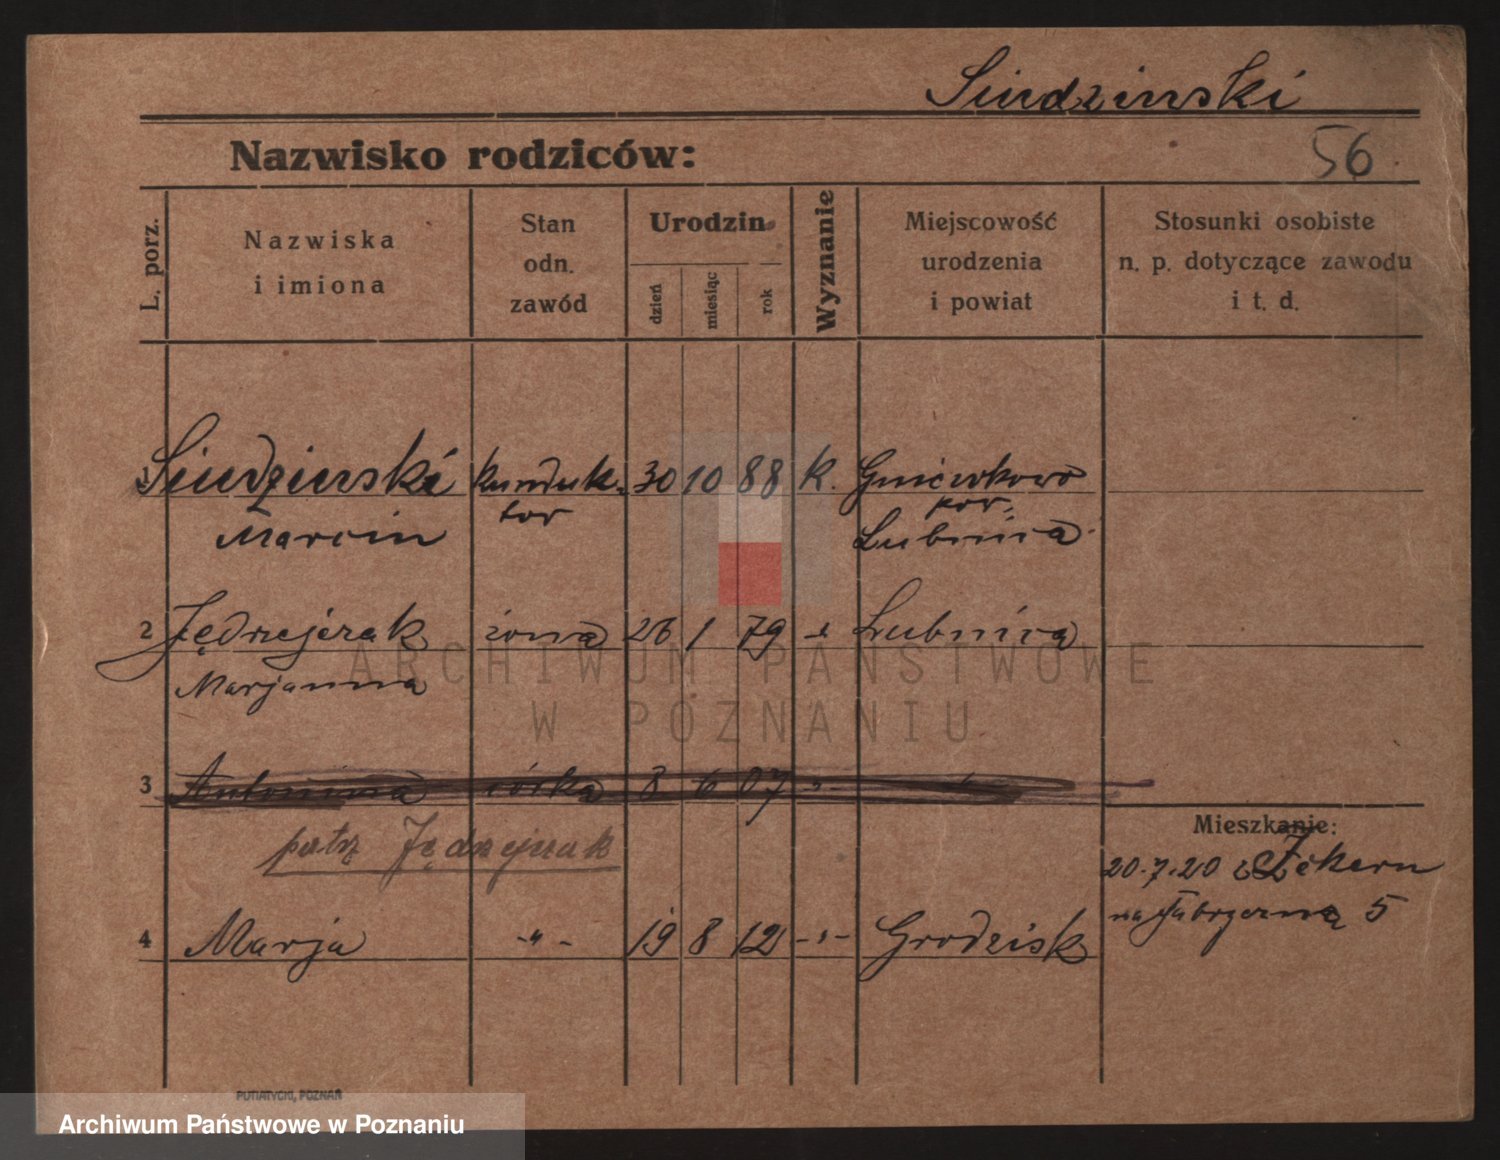 Siudzinski
Nazwisko rodziców:
56
L. porz.
Nazwiska
i imiona
Stan
odn.
zawód
Urodzin
dzień
miesiąc
rok
Wyznanie
Miejscowość
urodzenia
i powiat
Stosunki osobiste
n. p. dotyczące zawodu
i t. d.
1 Siudzinski konduk- 30 10 88 K. Gniewkowo
Marcin tor pow.
Lubnica
2 Jędrzejczak żona 26 1 79 -"- Lubnica
Marjanna
3 Antonina córka 8 6 07 -"- "
patrz Jędrzejczak
Mieszkanie:
20.7.20 z
na Fabryczną 5
4 Marja -"- 19 8 12 -"- Grodzisk
PUTIATYCKI, POZNAŃ
ARCHIWUM PAŃSTWOWE
W POZNANIU
Archiwum Państwowe w Poznaniu